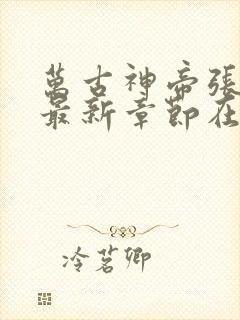 萬古神帝張
最新章節在
冷茗卿